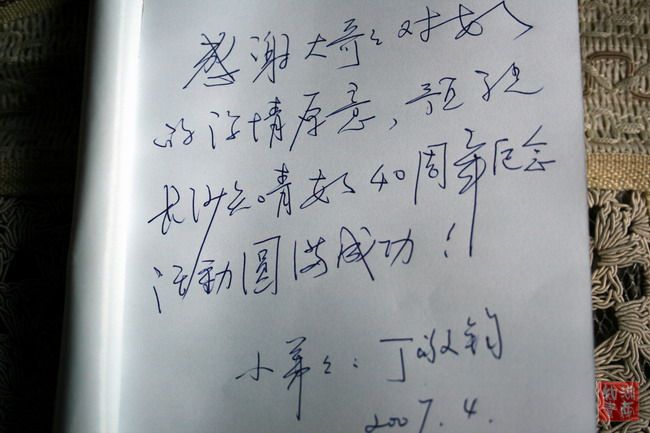 感谢大哥々对
的深情厚意,预祝
长沙知青 40周年纪念
活动圆满成功!
小弟々:丁 钧
2007.4.